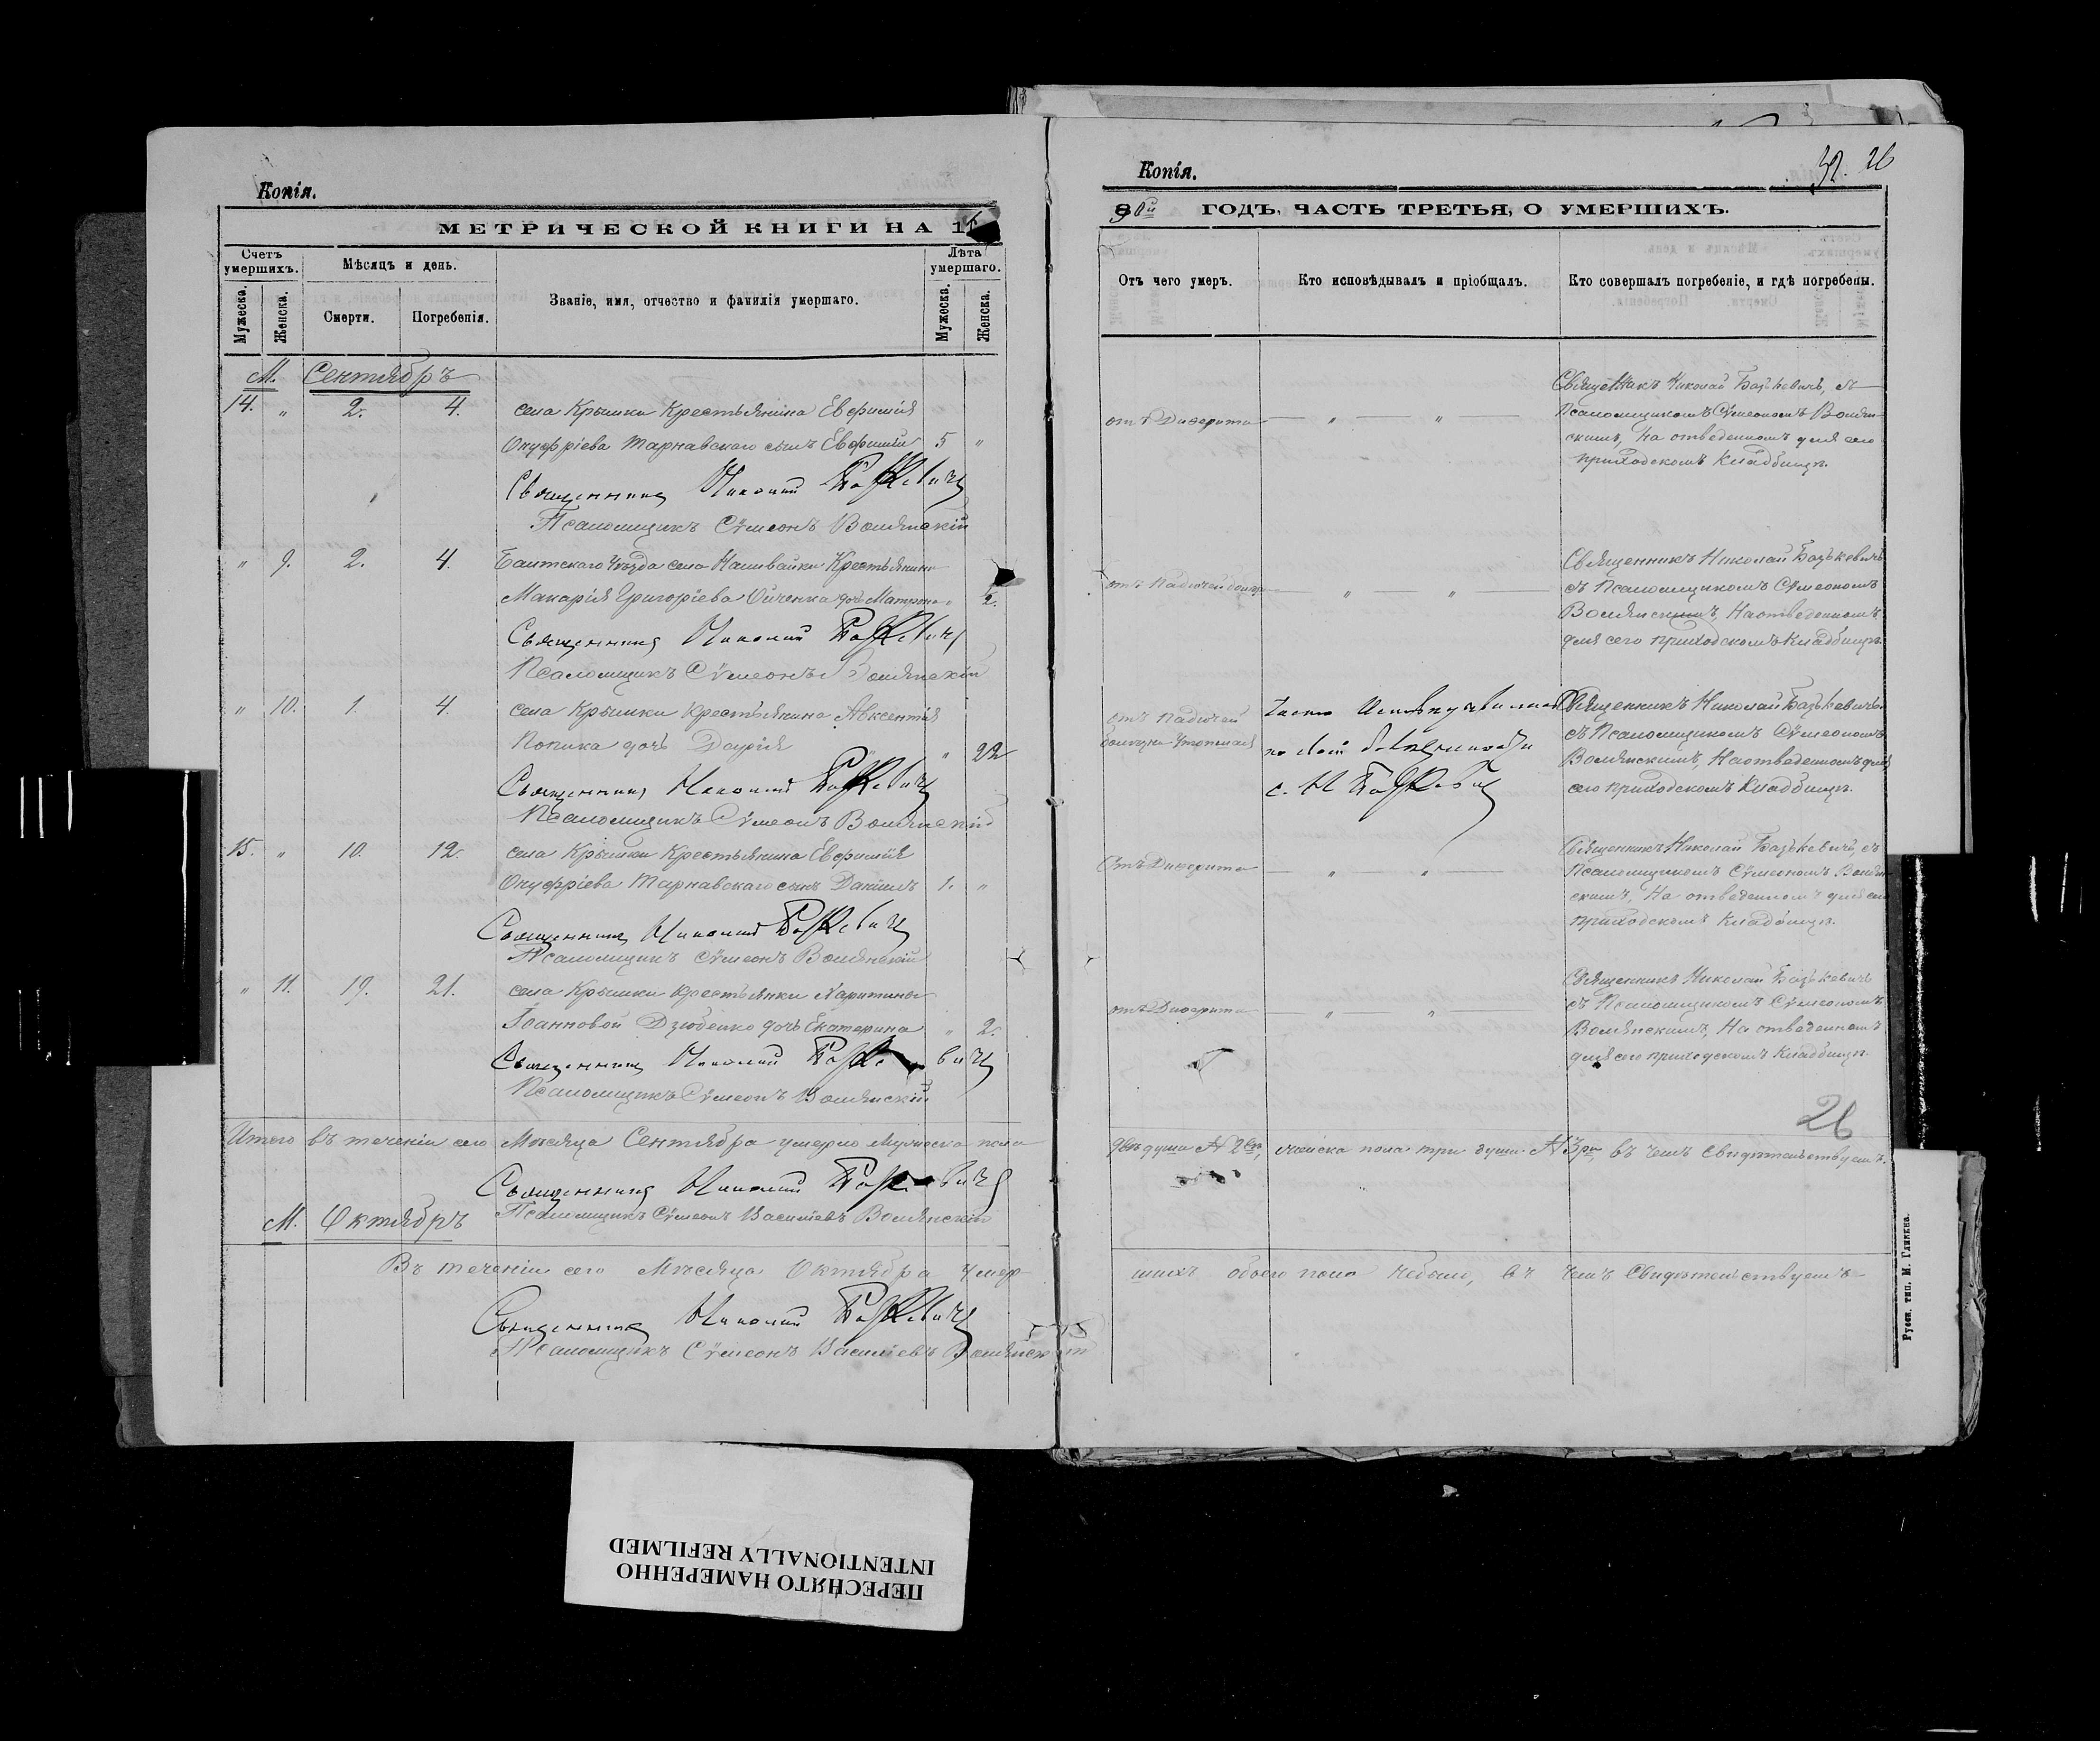 Копія.
МЕТРИЧЕСКОЙ КНИГИ НА 1
Счетъ умершихъ.
Мѣсяцъ и день.
Званіе, имя, отчество и фамилія умершаго.
Лѣта умершаго.
Мужеска.
Женска.
Смерти.
Погребенія.
Мужеска.
Женска.
М. Сентябрь
14. " 2. 4. села Крымки Крестьянина Евфимія
Онуфріева Тарнавскаго сынъ Евфимій 5 "
Священникъ Николай Базкевичъ
Псаломщикъ Сѵмеонъ Волянскій
" 9. 2. 4. Балтскаго Уѣзда села Наливайки Крестьянина
Макарія Григоріева дочь Матрона " 2.
Священникъ Николай Базкевичъ
Псаломщикъ Сѵмеонъ Волянскій
" 10. 1. 4. села Крымки Крестьянина Авксентія
Попика дочь Дарія " 22
Священникъ Николай Базкевичъ
Псаломщикъ Сѵмеонъ Волянскій
15. " 10. 12. села Крымки Крестьянина Евфимія
Онуфріева Тарнавскаго сынъ Даніилъ 1. "
Священникъ Николай Базкевичъ
Псаломщикъ Сѵмеонъ Волянскій
" 11. 19. 21. села Крымки Крестьянки Харитины
Іоанновой Дзюбенко дочь Екатерина " 2.
Священникъ Николай Базкевичъ
Псаломщикъ Сѵмеонъ Волянскій
Итого въ теченіи сего Мѣсяца Сентября умерло мужеска пола
Священникъ Николай Базкевичъ
Псаломщикъ Сѵмеонъ Василіевъ Волянскій
М. Октябрь
Въ теченіи сего Мѣсяца Октября умер-
Священникъ Николай Базкевичъ
Псаломщикъ Сѵмеонъ Василіевъ Волянскій
Копія.
26
90й ГОДЪ, ЧАСТЬ ТРЕТЬЯ, О УМЕРШИХЪ.
Отъ чего умеръ.
Кто исповѣдывалъ и пріобщалъ.
Кто совершалъ погребеніе, и гдѣ погребены.
отъ Диөерита " "
Священникъ Николай Базькевичъ, съ
Псаломщикомъ Сѵмеономъ Волян-
скимъ, На отведенномъ для сего
приходскомъ Кладбищѣ.
отъ Падючей " "
Священникъ Николай Базькевичъ
съ Псаломщикомъ Сѵмеономъ
Волянскимъ, На отведенномъ
для сего приходскомъ Кладбищѣ.
отъ Падючей
болѣзни утопшая
с. Н Базкевичъ
Священникъ Николай Базькевичъ
съ Псаломщикомъ Сѵмеономъ
Волянскимъ, На отведенномъ для
сего приходскомъ Кладбищѣ.
Отъ Диөерита " "
Священникъ Николай Базькевичъ, съ
Псаломщикомъ Сѵмеономъ Волян-
скимъ, На отведенномъ для сего
приходскомъ Кладбищѣ.
отъ Диөерита " "
Священникъ Николай Базькевичъ
съ Псаломщикомъ Сѵмеономъ
Волянскимъ, На отведенномъ
для сего приходскомъ Кладбищѣ.
26
двѣ души № 2ва, женска пола три души № 3ри, въ чемъ Свидѣтельствуемъ.
шихъ обоего пола небыло, въ чемъ Свидѣтельствуемъ
Русск. тип. М. Гликмана.
ПЕРЕСНЯТО НАМЕРЕННО
INTENTIONALLY REFILMED